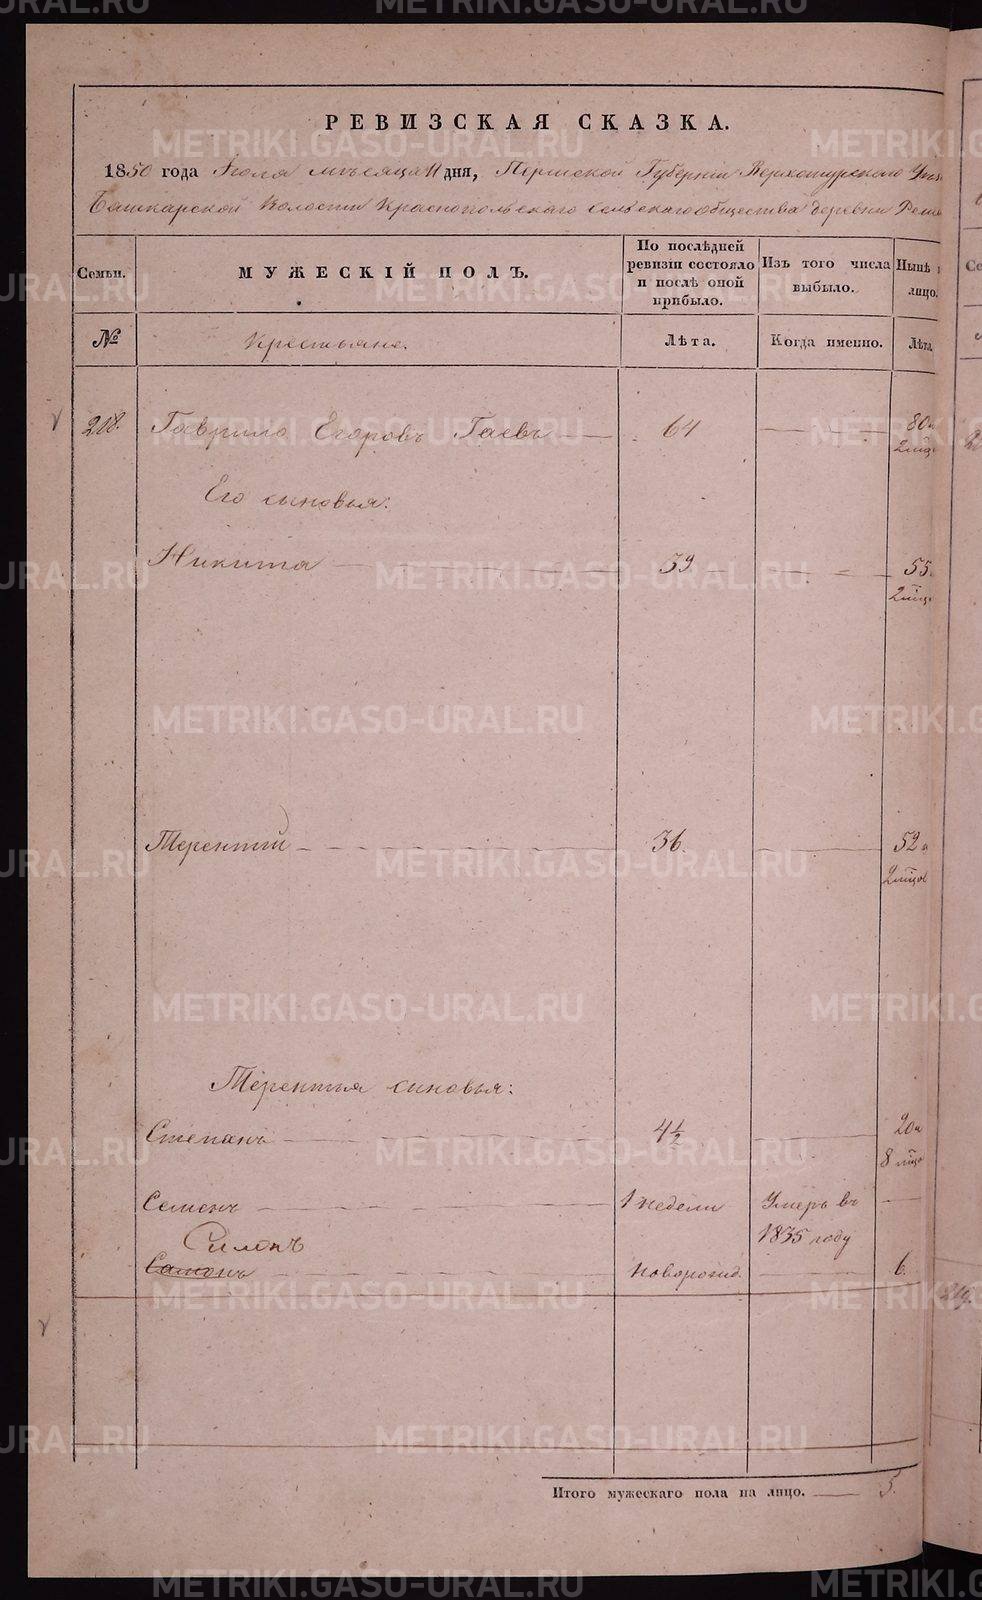 РЕВИЗСКАЯ СКАЗКА.
1850 года Июля месяца 11 дня, Пермской Губерніи Верхотурскаго
Башкарской Волости Краснопольскаго сельскаго общества деревни
Семьи.
МУЖЕСКІЙ ПОЛЪ.
По послѣдней ревизіи состояло и послѣ оной прибыло.
Изъ того числа выбыло.
Нынѣ
лицо.
№
Крестьяне.
Лѣта.
Когда именно.
Лѣта
218.
Гаврило Егоровъ Гаевъ
64
80
Его сыновья:
Никита
39
55
Терентій
36.
52
Терентья сыновья:
Степанъ
4 1/2
20
8
Семенъ
1 недели
Умеръ въ
1835 году
Силонъ
Самонъ
новорожд.
6.
219.
Итого мужескаго пола на лицо.
5.
METRIKI.GASO-URAL.RU